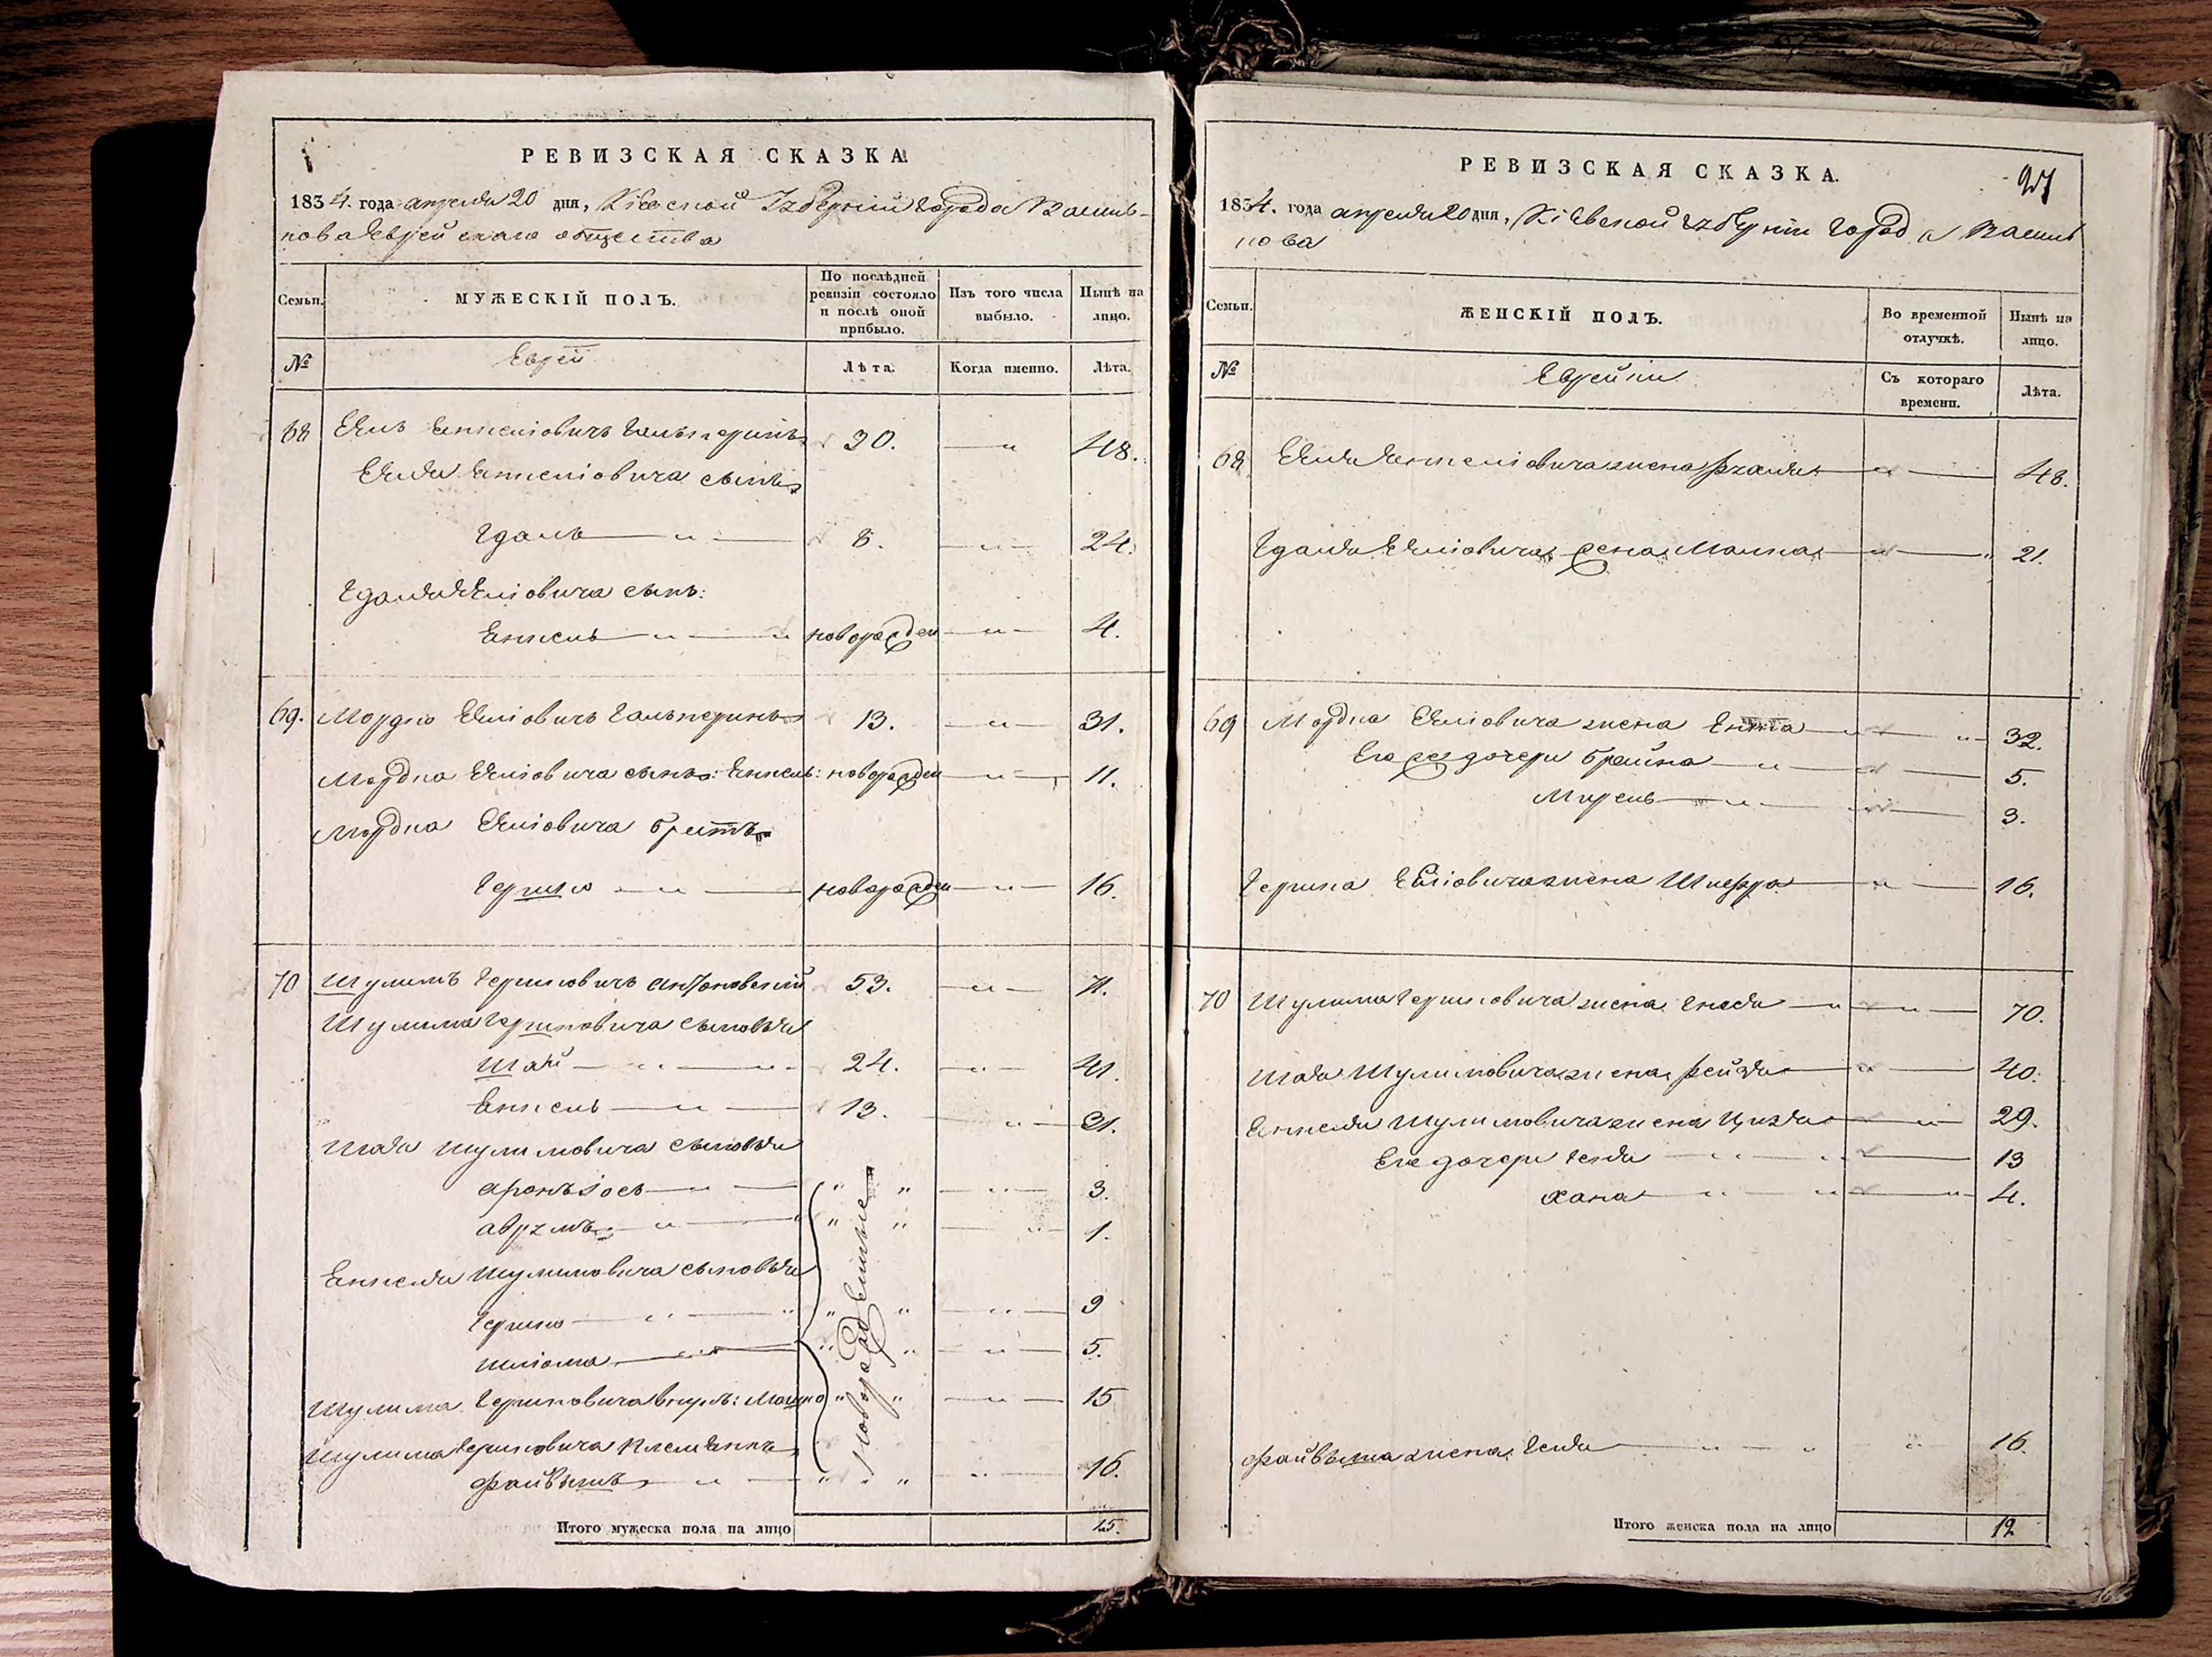 РЕВИЗСКАЯ СКАЗКА.
1834. года апреля 20 дня, Кіевской Губерніи города Василь-
кова Еврейскаго общества
Семьи.
МУЖЕСКІЙ ПОЛЪ.
По послѣдней ревизіи состояло и послѣ оной прибыло.
Изъ того числа выбыло.
Нынѣ на лицо.
№
Евреи
Лѣта.
Когда именно.
Лѣта.
68 Еель Аншеліовичъ Гальперинъ 30. — " 48.
Ееля Аншеліовича сынъ
Гдаль — " — 8. — " — 24.
Гдаля Ееліовича сынъ:
Аншель — " — новорожден — " — 4.
69. Мордко Ееліовичъ Гальперинъ 13. — " — 31.
Мордка Ееліовича сынъ: Аншель: новорожден — " — 11.
Мордка Ееліовича братъ
Гершко — " — новорожден — " — 16.
70 Шулимъ Гершковичъ Антоновскій 53. — " — 71.
Шулима Гершковича сыновья
Шай — " — " — 24. — " — 41.
Аншель — " — 13. — " — 31.
Шаи Шулимовича сыновья
Аронъ Іось — " — " " — " — 3.
Аврумъ — " — " " — " — 1.
Аншеля Шулимовича сыновья
Гершко — " — " " — " — 9
Шліома — " — " " — " — 5.
новорожденные
Шулима Гершковича внукъ: Мошко " " — " — 15
Шулима Гершковича племянникъ
Файвышъ — " — " " " 16.
Итого мужеска пола на лицо 15.
РЕВИЗСКАЯ СКАЗКА.
1834. года апреля 20 дня, Кіевской Губерніи города Василь
кова
Семьи.
ЖЕНСКІЙ ПОЛЪ.
Во временной отлучкѣ.
Нынѣ на лицо.
№
Еврейки
Съ котораго времени.
Лѣта.
68 Ееля Аншеліовича жена — " — 48.
Гдаля Ееліовича жена Малка — " — " 21.
69 Мордка Ееліовича жена — " — " — 32.
Его дочери Брайна — " — " — 5.
Мирель — " — " — 3.
Гершка Ееліовича жена Шпефра — " — 16.
70 Шулима Гершковича жена — " — " — 70.
Шаи Шулимовича жена Рейзя — " — 40.
Аншеля Шулимовича жена — " — 29.
Его дочери Геня — " — " — 13
Хана — " — " — " — 4.
Файвыша жена Геня — " — " " 16.
Итого женска пола на лицо 12